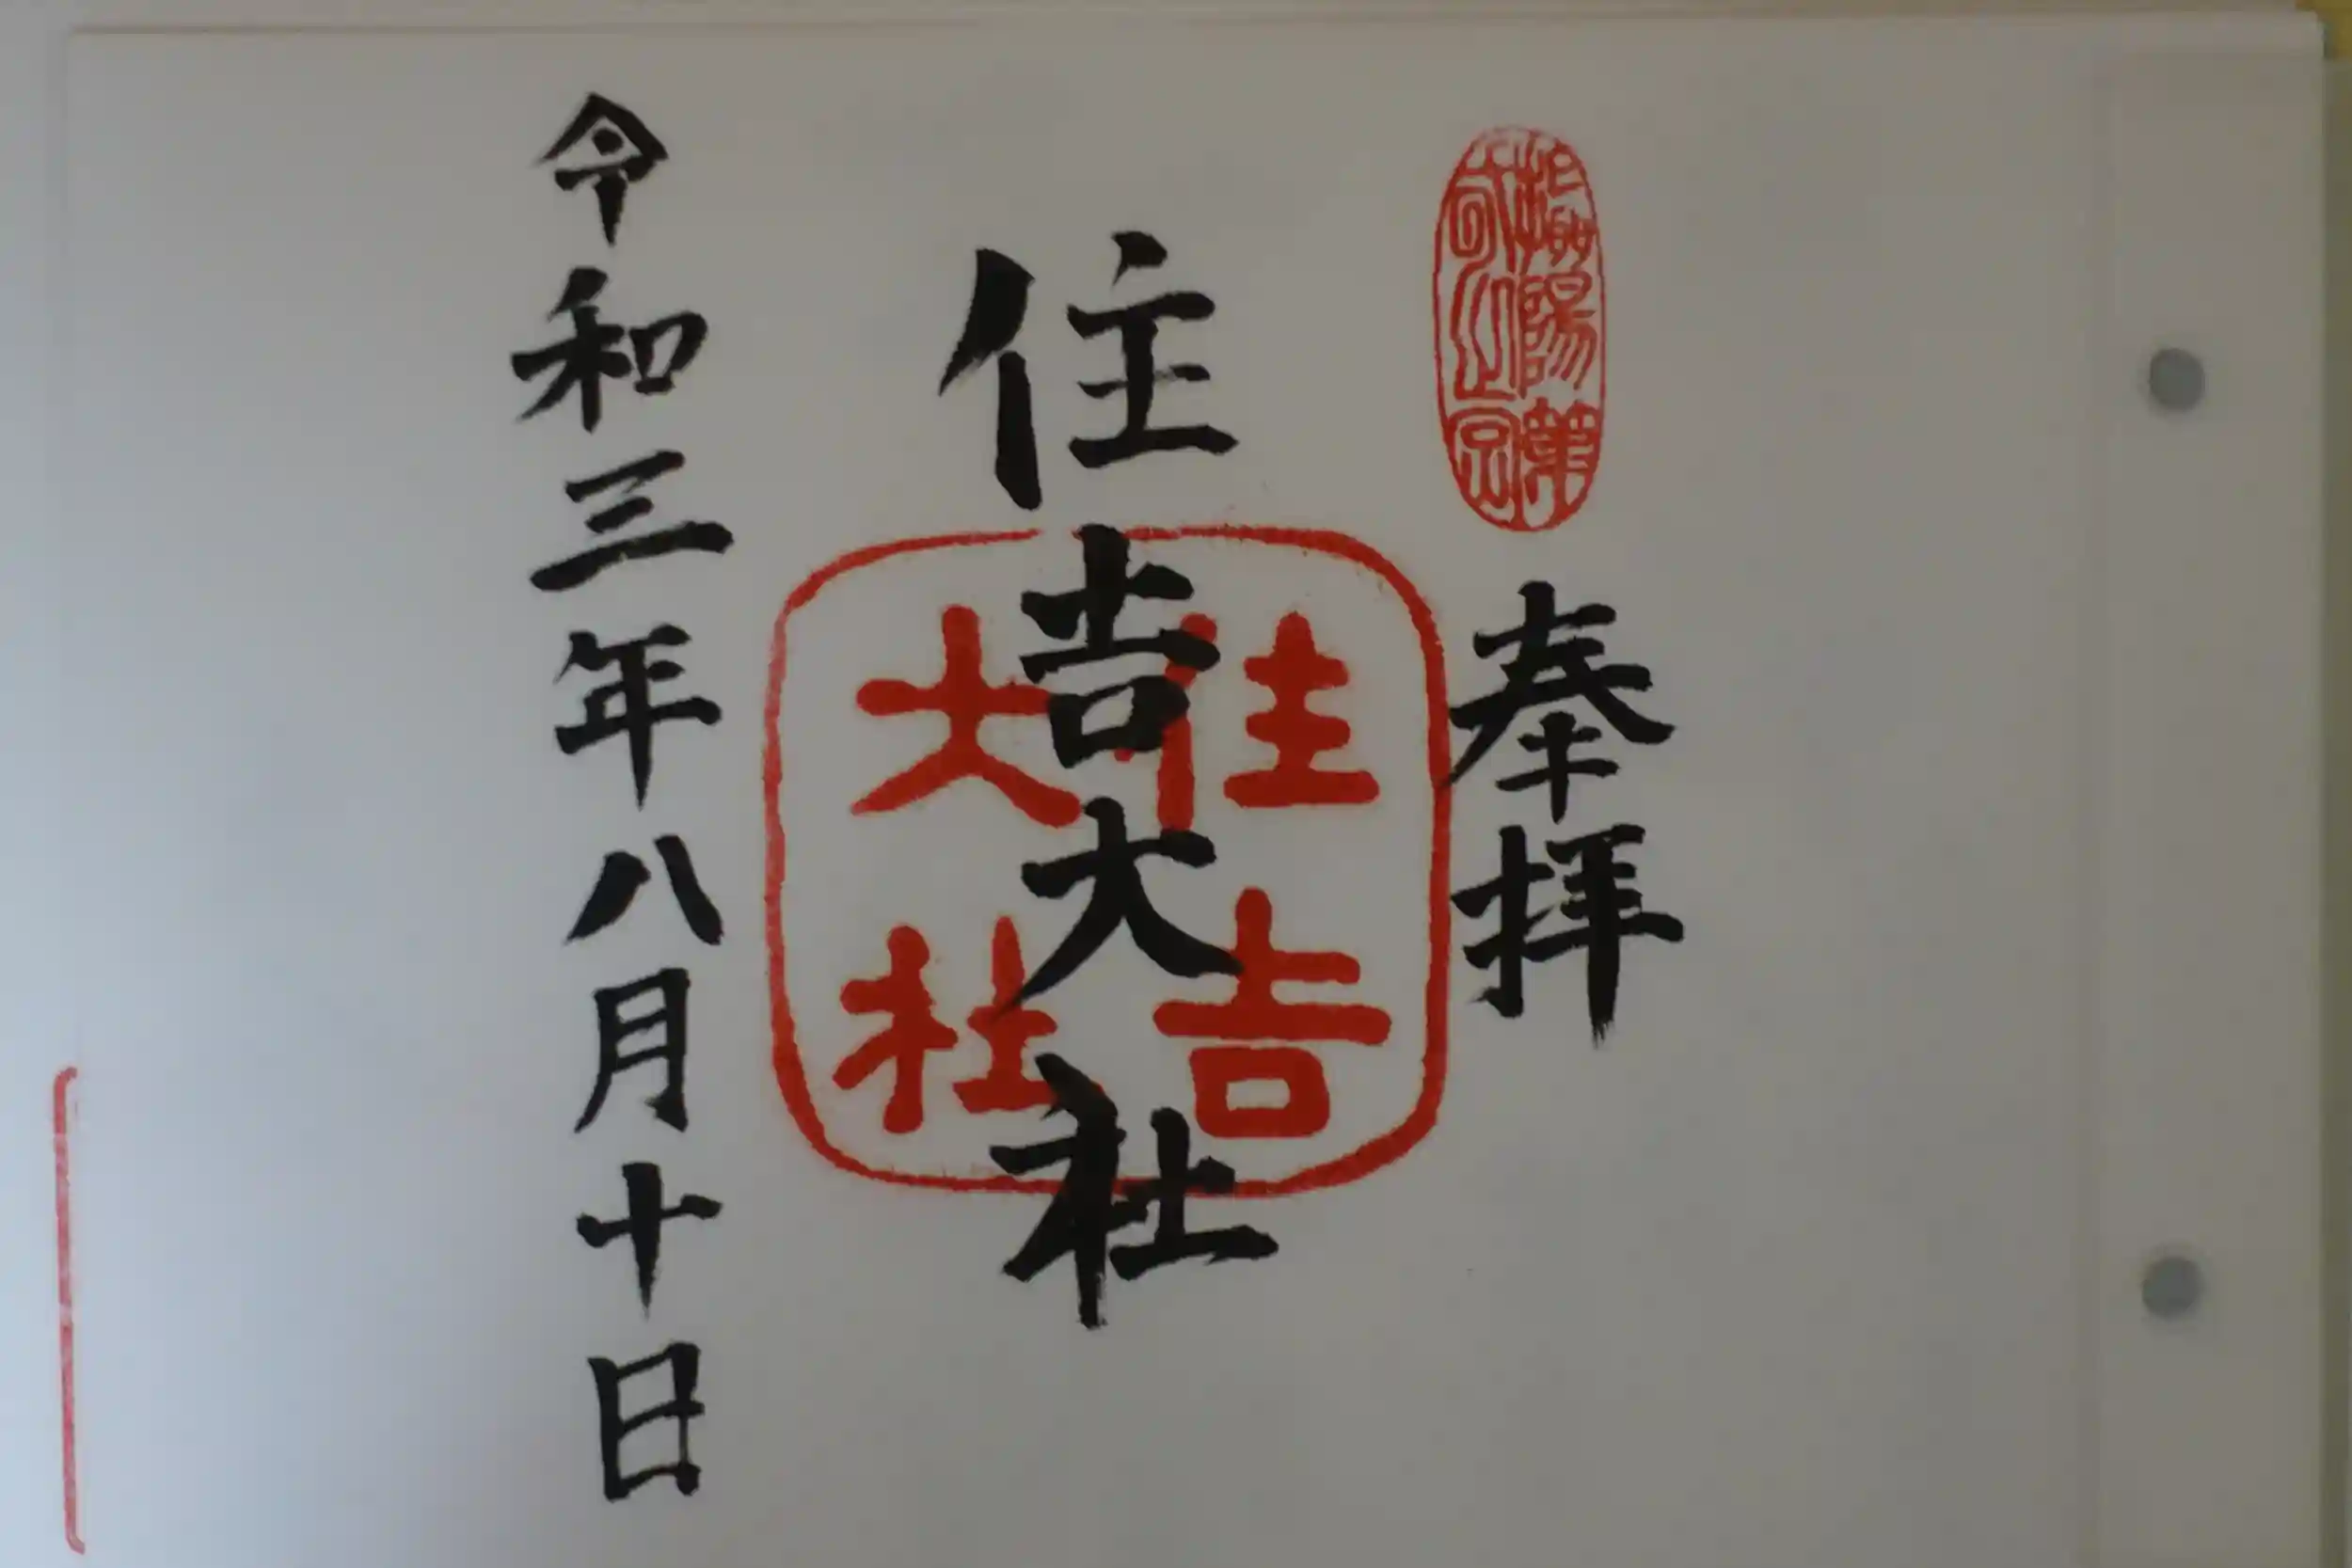 奉拝
住吉大社
住吉
大社
令和三年八月十日